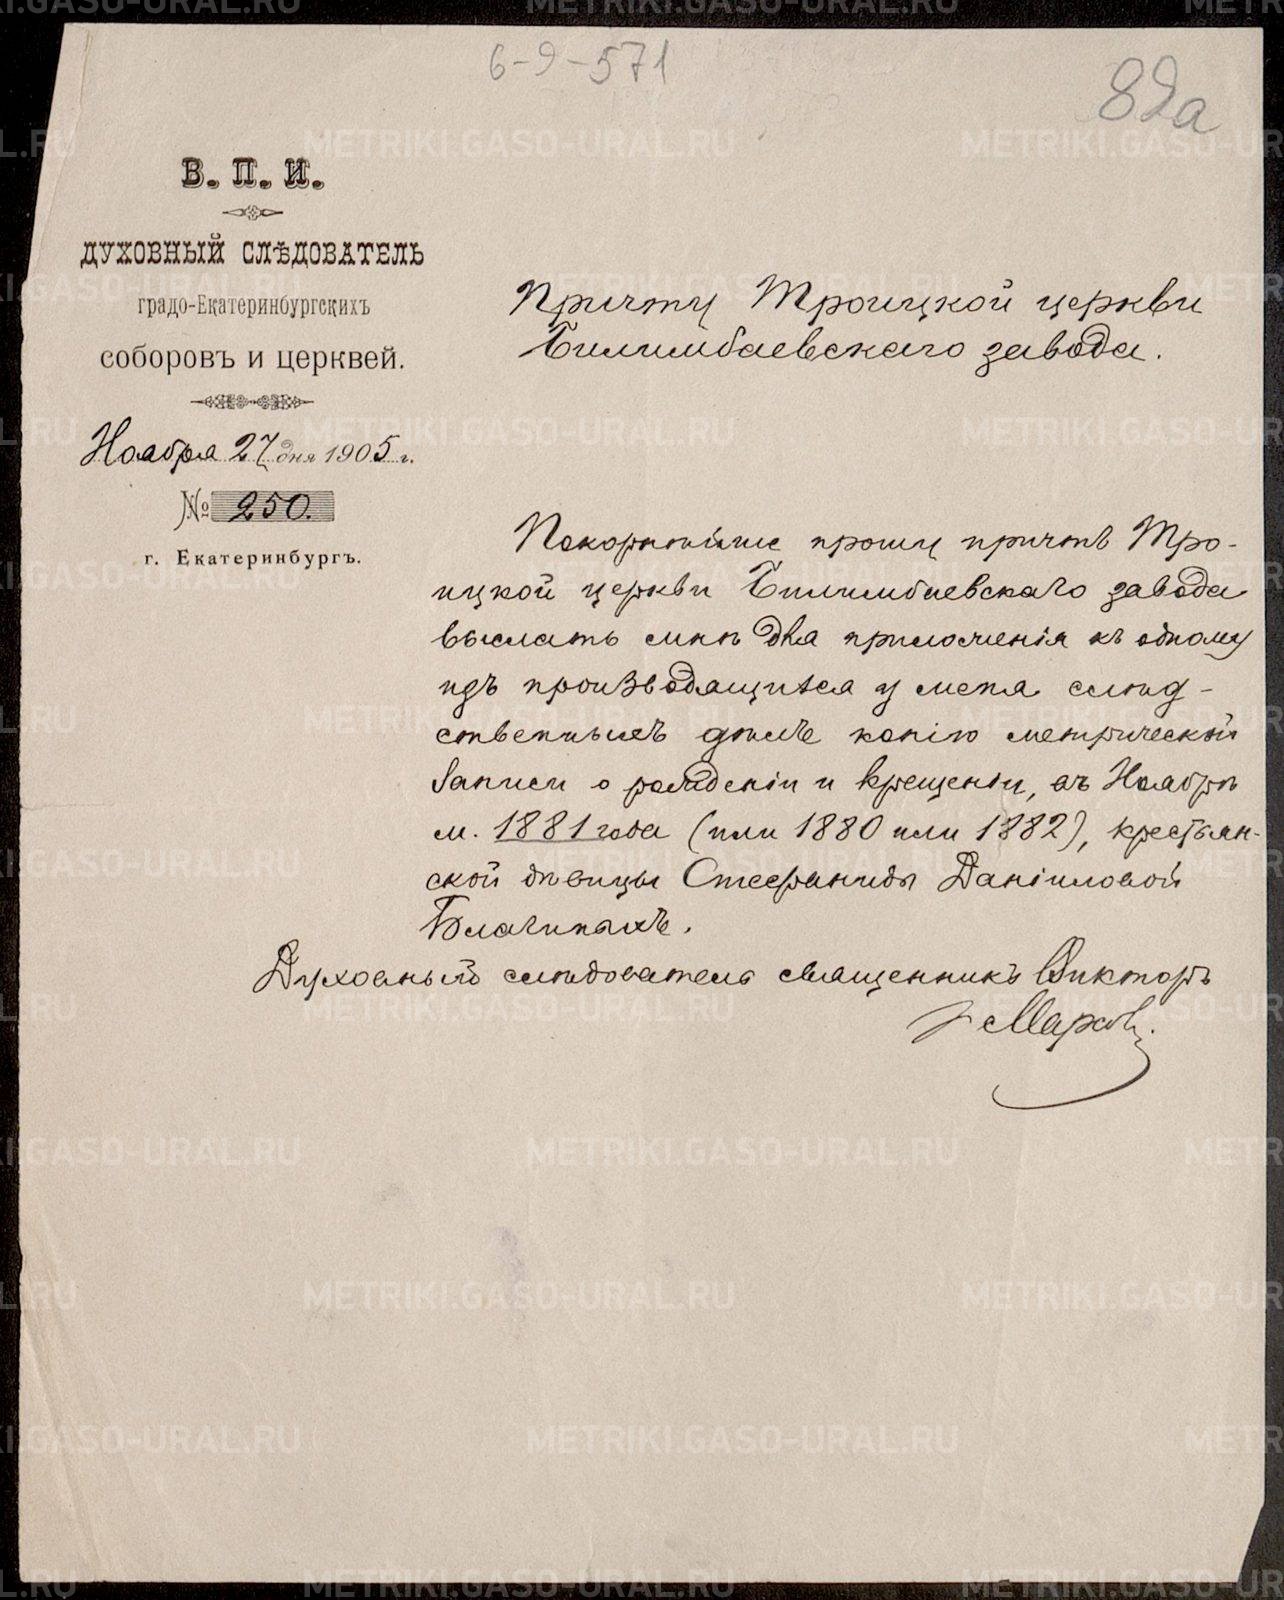 6-9-571
82а
В. П. И.
ДУХОВНЫЙ СЛѢДОВАТЕЛЬ
градо-Екатеринбургскихъ
соборовъ и церквей.
Ноября 27 дня 1905 г.
№ 250.
г. Екатеринбургъ.
Причту Троицкой церкви
Билимбаевскаго завода.
Покорнѣйше прошу причтъ Тро-
ицкой церкви Билимбаевскаго завода
выслать мнѣ для приложенія къ одному
изъ производящихся у меня слѣд-
ственныхъ дѣлъ копію метрической
записи о рожденіи и крещеніи, въ Ноябрѣ
м. 1881 года (или 1880 или 1882), крестьян-
ской дѣвицы Стефаниды Даніиловой
Духовный слѣдователь священникъ Викторъ
Марков.
METRIKI.GASO-URAL.RU